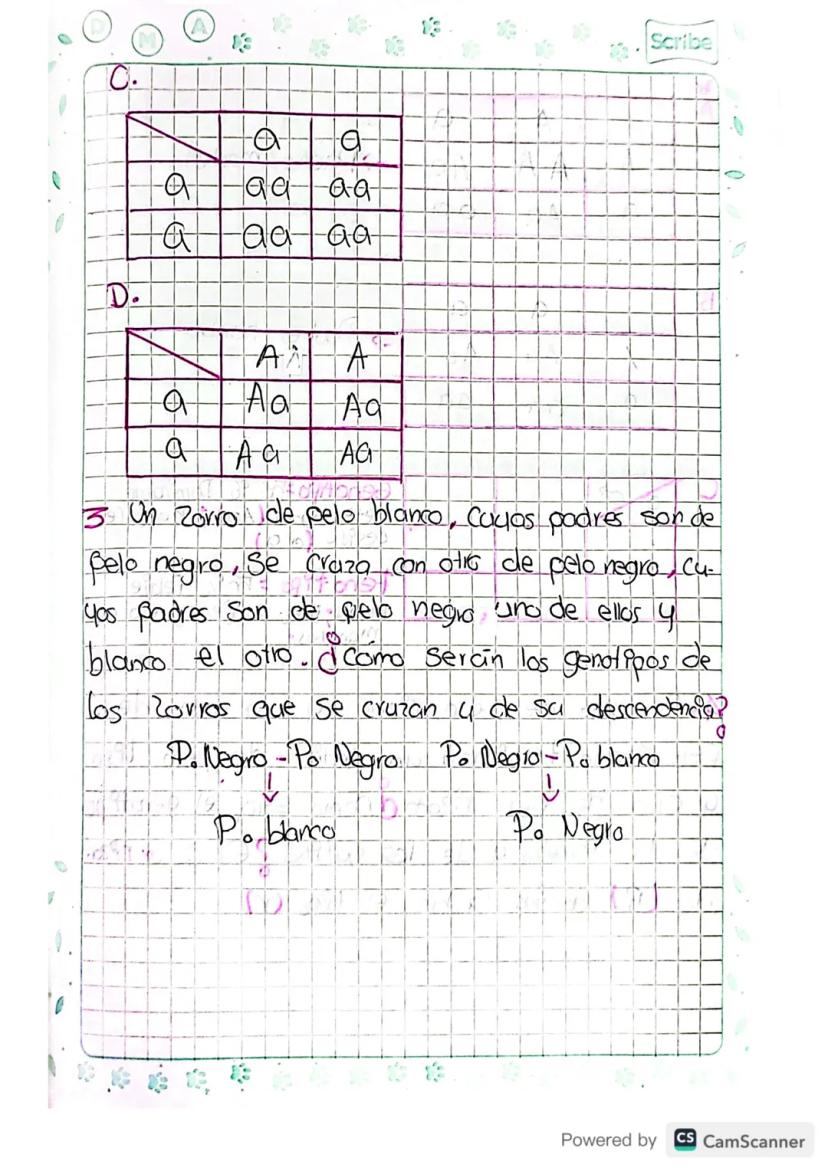 D M A
Scribe
C.
a a
a aa aa
a aa aa
D.
A A
a Aa Aa
a Aa Aa
3 Un zorro de pelo blanco, cuyos padres son de
pelo negro, se cruza con otro de pelo negro, cu-
yos padres son de pelo negro uno de ellos y
blanco el otro. ¿Cómo serán los genotipos de
los zorros que se cruzan y de su descendencia?
P. Negro - P. Negro P. Negro - P. blanco
P. blanco P. Negro
Powered by CS CamScanner